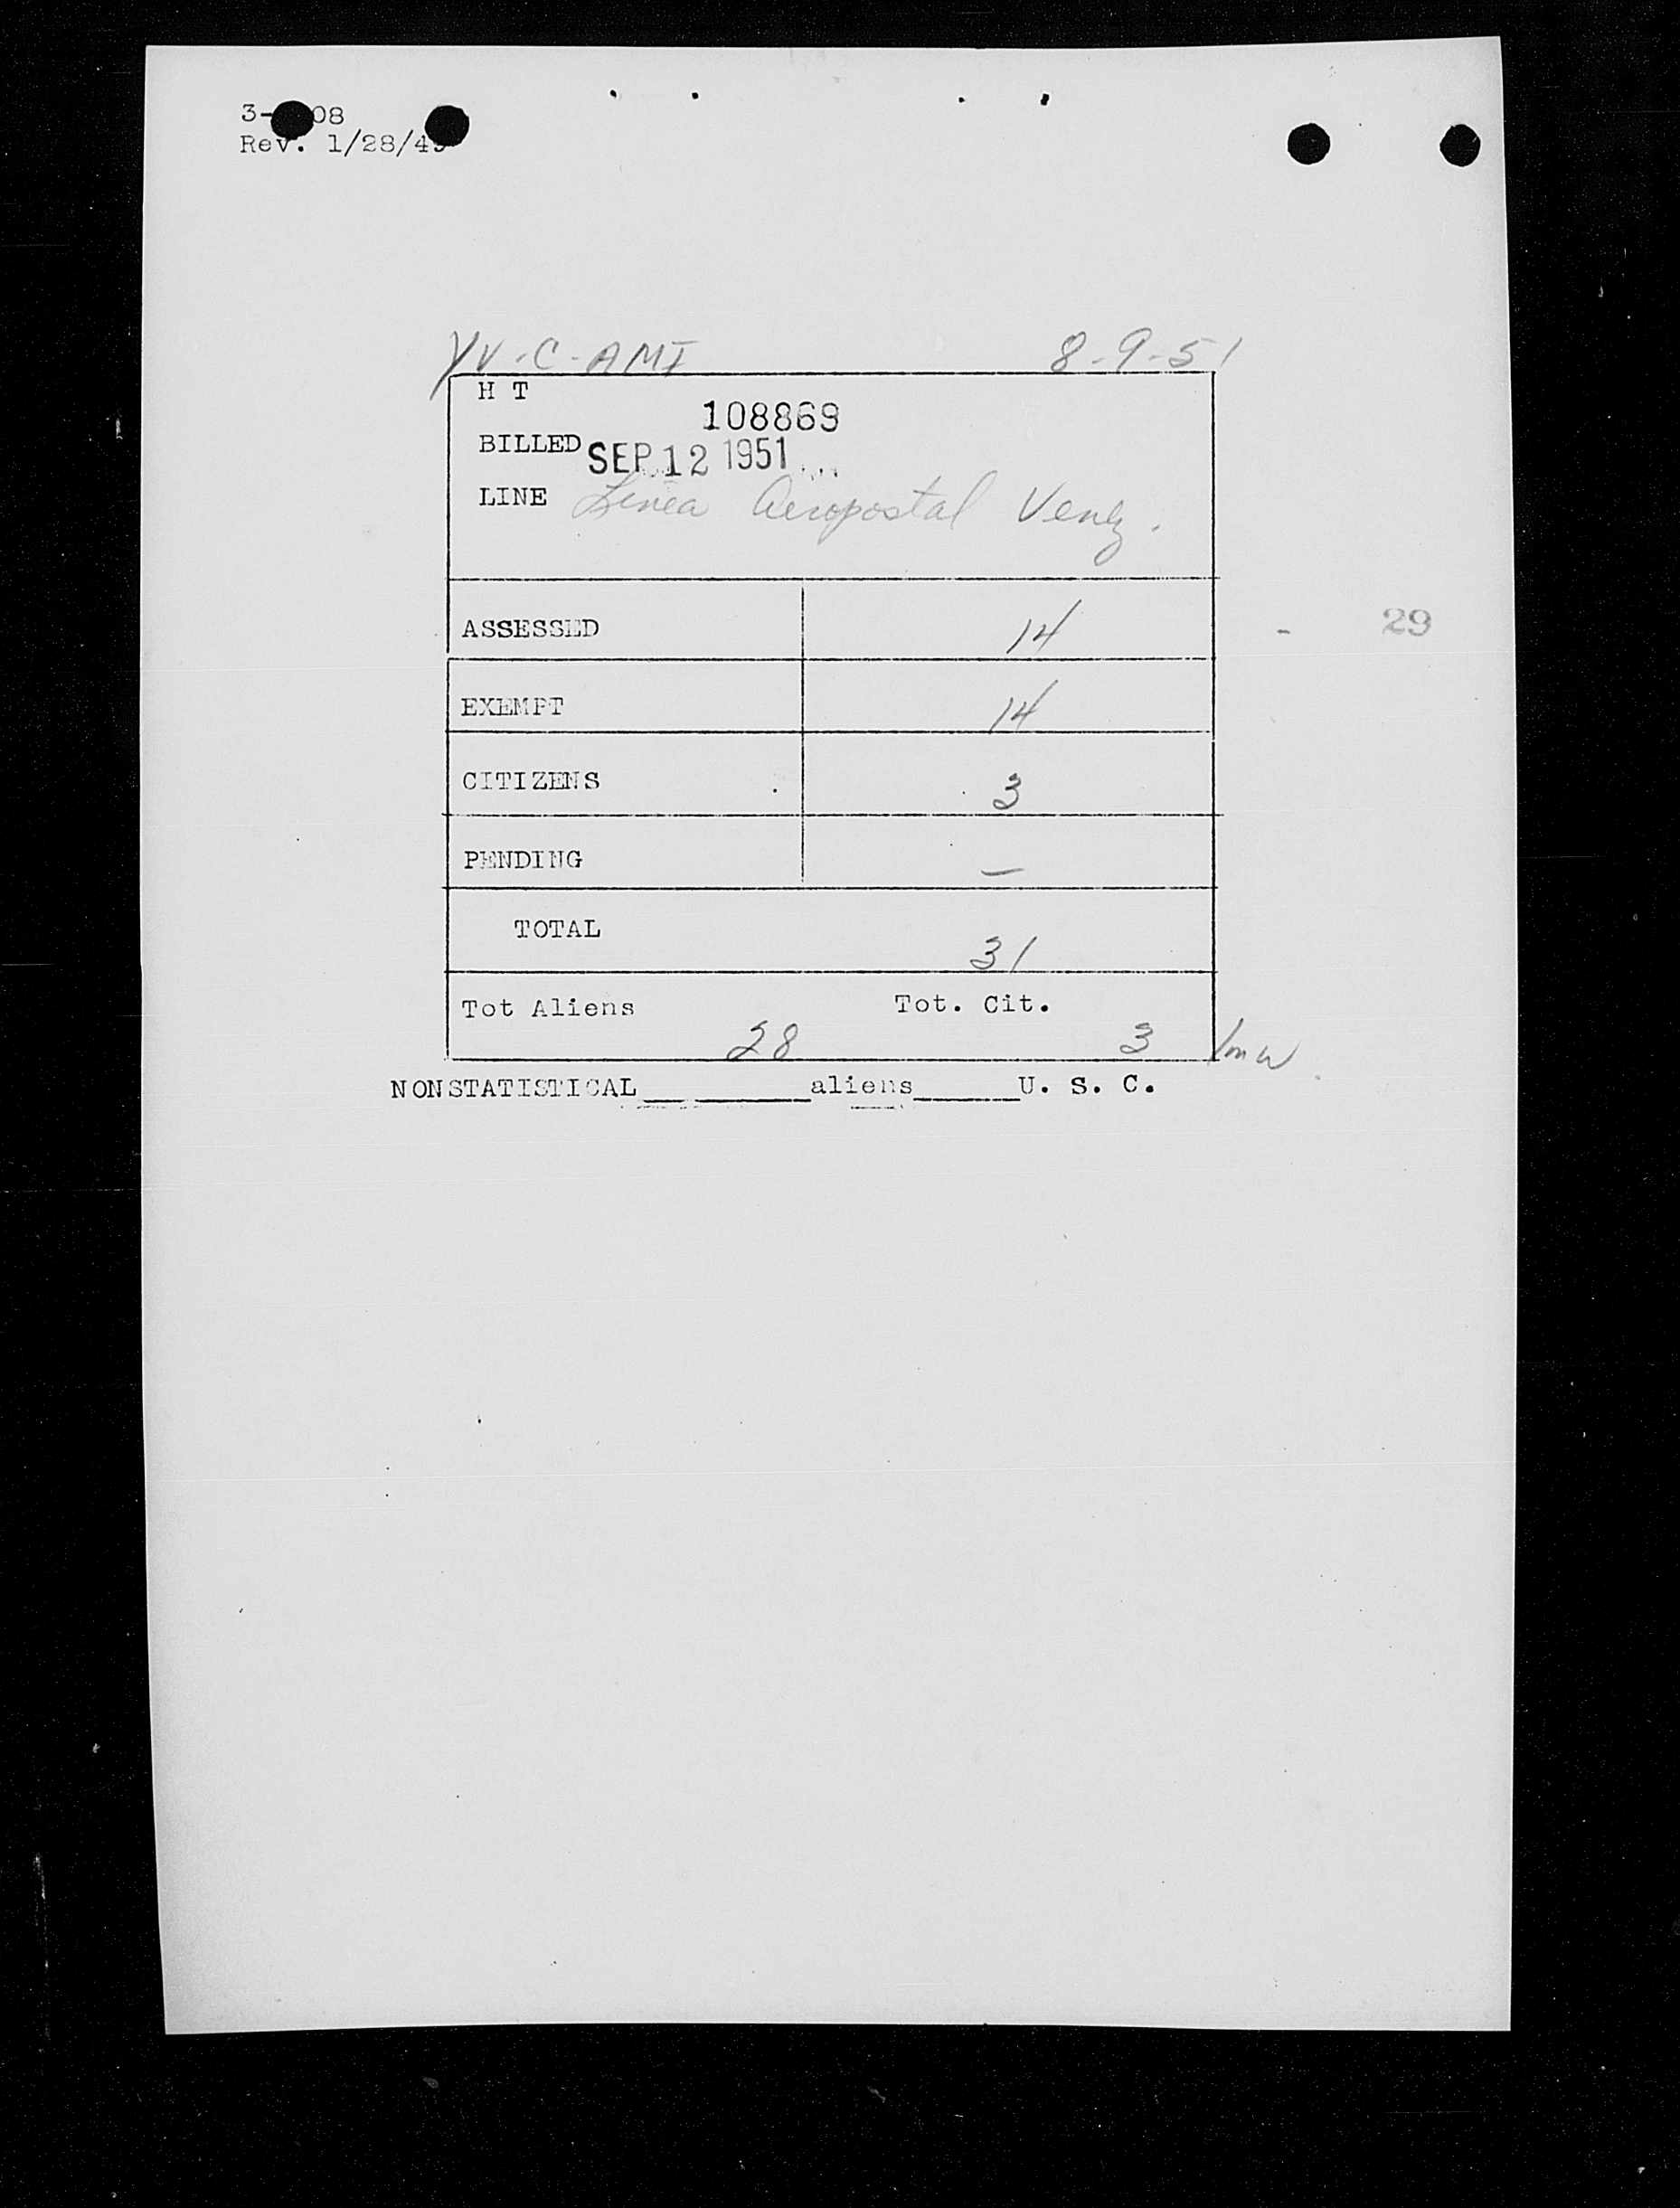 Rev. 1/28/49
YV-C-AMI 8-9-51
H T
108869
BILLED SEP 12 1951
LINE Linea Aeropostal Venez.
ASSESSED 14
29
EXEMPT 14
CITIZENS 3
PENDING —
TOTAL 31
Tot Aliens Tot. Cit.
28 3 lmw
NONSTATISTICAL__________aliens______U. S. C.